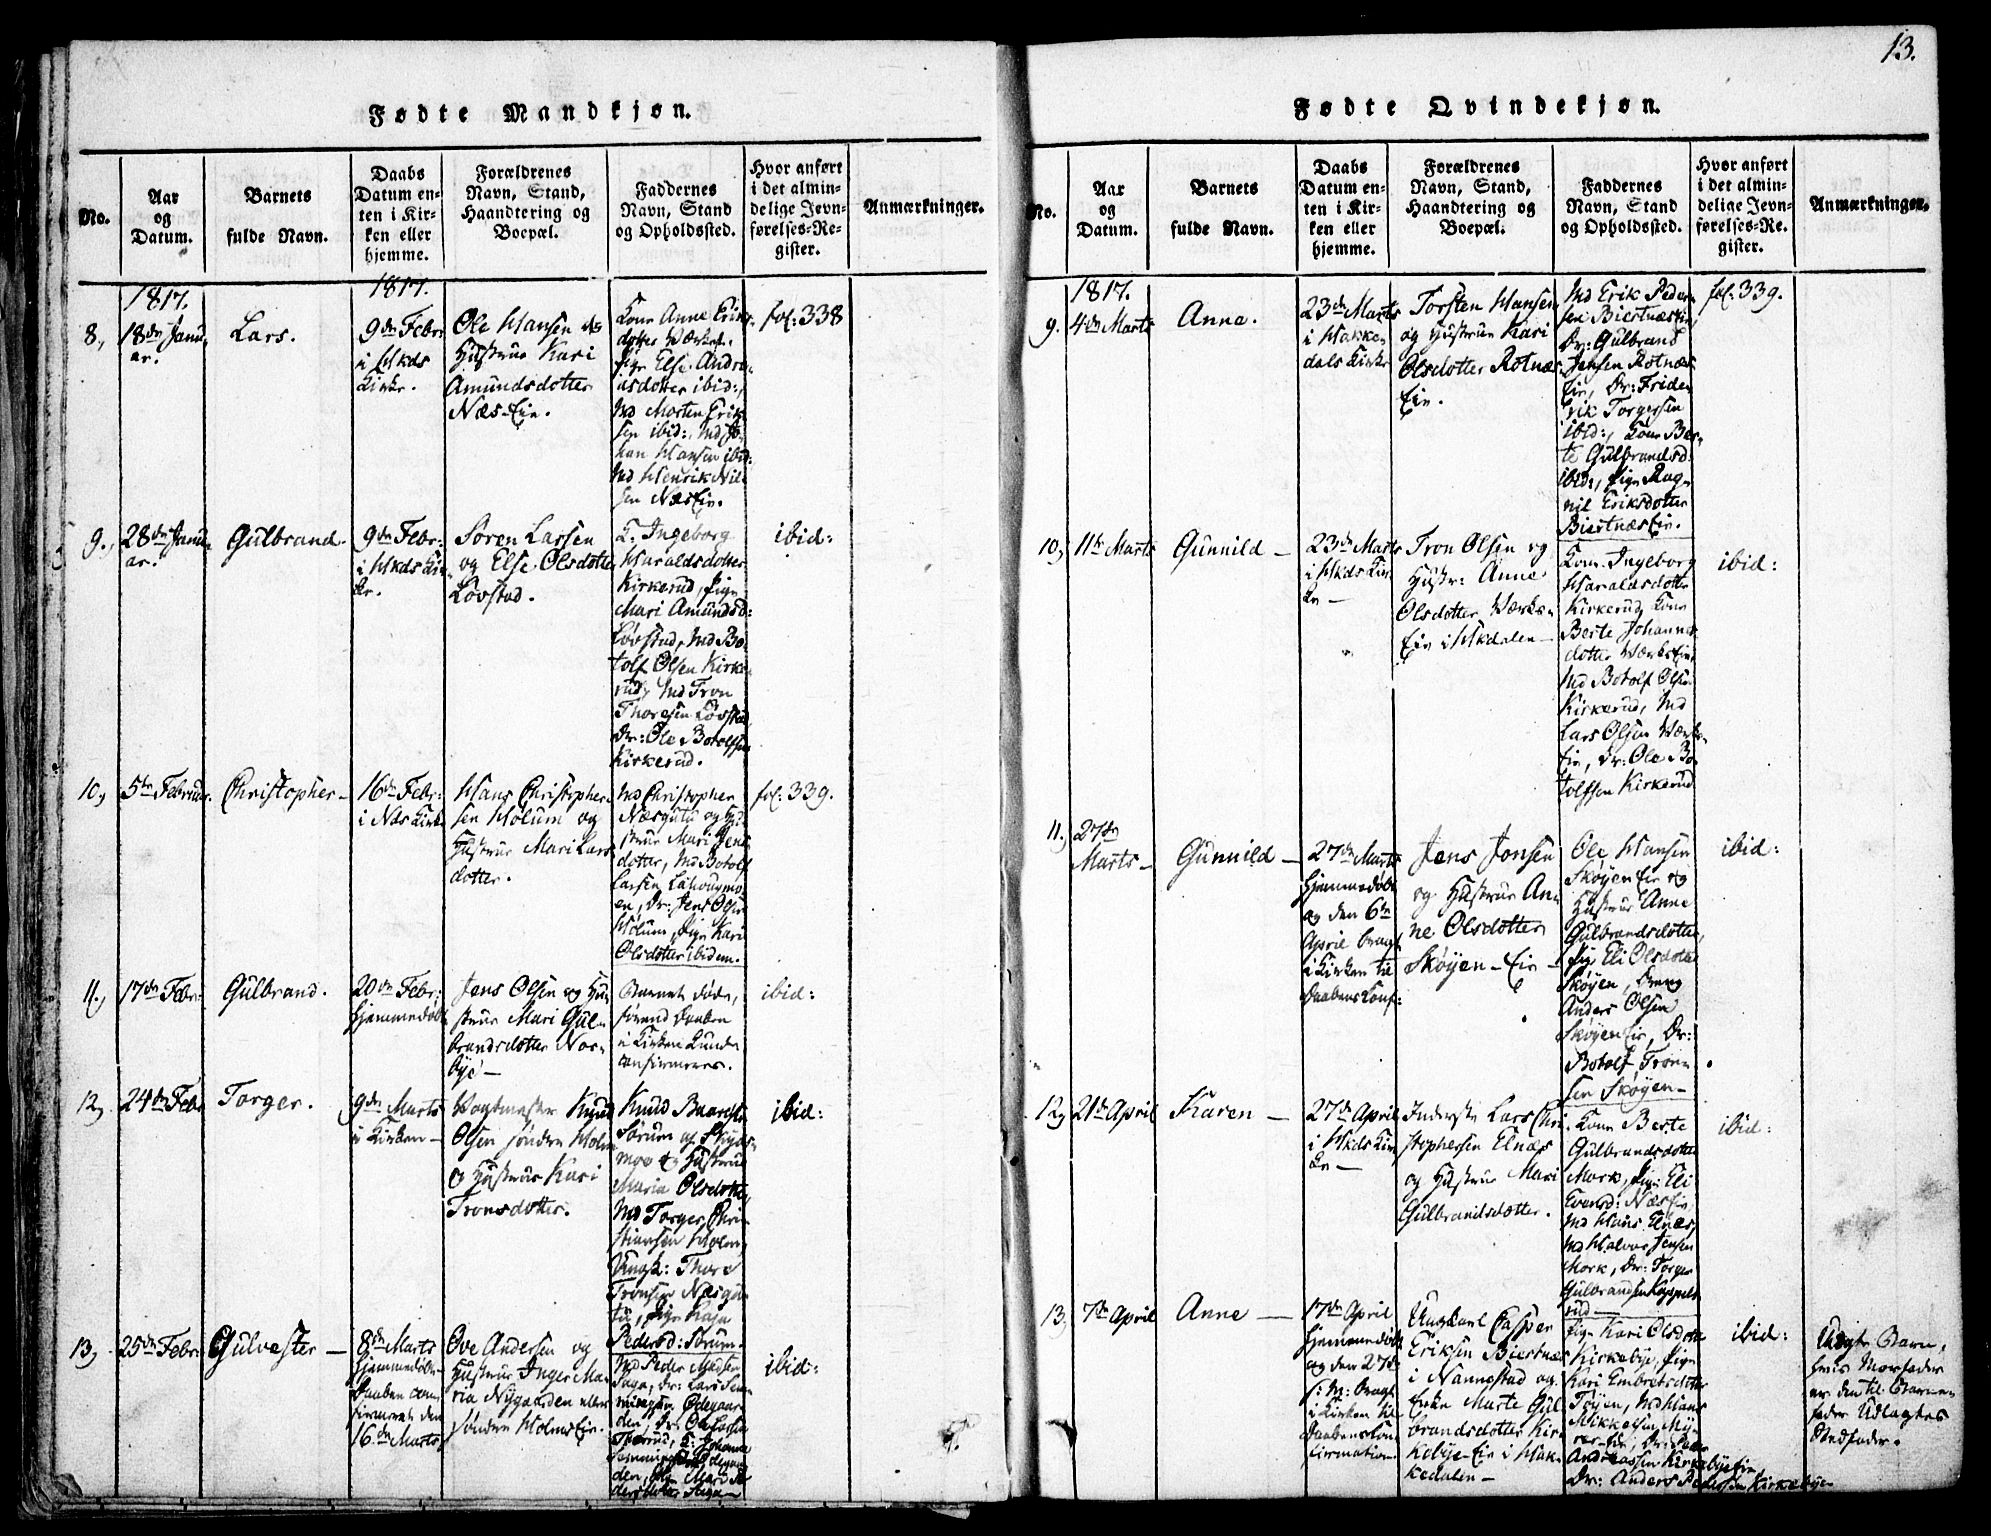 13.
Fødte Mandkjøn.
No.
Aar
og
Datum.
Barnets
fulde Navn.
Daabs
Datum en-
ten i Kir-
ken eller
hjemme.
Forældrenes
Navn, Stand,
Haandtering og
Boepæl.
Faddernes
Navn, Stand
og Opholdssted.
Hvor anført
i det almin-
delige Jevn-
førelses-Re-
gister.
Anmærkninger.
1817.
8,
18de Janu-
ar.
Lars.
1817.
9de Febr:
i Hkds
Kirke.
Ole Hansen og
Hustrue Kari
Amundsdotter
Næs-Eie.
Kone Anne Eriks-
dotter Værket,
Pige Else Andre-
asdotter ibid:,
Md Morten Erik-
sen ibid:, Md Jo-
han Hansen ibid:
Md Henrik Nil-
sen NæsEie.
fol: 338
9.,
28de Janu-
ar.
Gulbrand.
9de Febr:
i Hkds Kir-
ke.
Søren Larsen
og Else Olsdotter
Løvstad.
K. Ingeborg
Haraldsdotter
Kirkerud, Pige
Mari Amundsd:
Løvstad, Md Bo-
tolf Olsen Kirke-
rud, Md Tron
Thoresen Løvstad
Dr: Ole Botolfsen
Kirkerud.
ibid:
10,
5te Februar.
Christopher-
16de Febr:
i Næs Kirke
Hans Christopher-
sen Holum og
Hustrue Mari Lars-
dotter.
Md Christopher
Næsgutu og Hu-
strue Mari Jens-
dotter, Md Botolf
Larsen
en, Dr: Jens Olsen
Holum, Pige Kari
Olsdotter ibidem.
fol: 339.
11.,
17de Febr:
Gulbrand.
20de Febr:
Hjemmedøbt
Jens Olsen og Hu-
strue Mari Gul-
brandsdotter Nor-
bye-
Barnet døde,
førend Daaben
i Kirken kunde
confirmeres.
ibid:
12,
24de Febr
Torger.
9de Marts
i Kirken-
Vagtmester Knud
Olsen søndre Holm
og Hustrue Kari
Tronsdotter.
Knud
Sørum af
og Hustrue
Maria Olsdotter
Md Torger Chri-
stiansen Holm,
Ungk: Thore
Tronsen Næsgu-
tu, Pige Kaja
Pedersd: Sørum.
ibid:
13,
25de Febr:
Gulvester-
8de Marts
hjemmedøbt-
Daaben con-
firmeret den
16de Marts
Ove Andersen og
Hustrue Inger Ma-
ria Nygaarden eller
søndre HolmsEie.
Md Peder
Saga, Dr: Lars
Ødegaar-
den, Dr:
K: Johanne
Ødegaar-
den, Pige Mari Pe-
dersdotter Saga-
ibid:
Fødte Qvindekjøn.
No.
Aar
og
Datum.
Barnets
fulde Navn.
Daabs
Datum en-
ten i Kir-
ken eller
hjemme.
Forældrenes
Navn, Stand,
Haandtering og
Boepæl.
Faddernes
Navn, Stand
og Opholdssted.
Hvor anført
i det almin-
delige Jevn-
førelses-Re-
gister.
Anmærkninger.
1817.
9.
4de Marts
Anne.
23de Marts
i Hakke-
dals Kirke
Torsten Hansen
og Hustrue Kari
Olsdotter Rotnæs-
Eie.
Md Erik Peder-
sen BiertnæsEie,
Dr: Gulbrand
Jensen Rotnæs-
Eie, Dr: Friden
Erik Torgersen
ibid:, Kone Ber-
te Gulbrandsd:
ibid:, Pige Rag-
nil Eriksdotter
BiertnæsEie.
fol: 339.
10,
11te Marts
Gunnild-
23de Marts
i Hkds Kir-
ke-
Tron Olsen og
Hustr: Anne
Olsdotter Værks-
Eie i Hkdalen-
Kone Ingeborg
Haraldsdotter
Kirkerud, Kone
Berte Johannes-
dotter VærksEie,
Md Botolf Olsen
Kirkerud, Md
Lars Olsen Værks-
Eie, Dr: Ole Bo-
tolfsen Kirkerud
ibid:
11.
27de
Marts-
Gunnild-
27de Marts
hjemmedøbt
og den 6te
April bragt
i Kirken til
Daabens Conf:
Jens Jonsen
og Hustrue An-
ne Olsdotter
Skøyen-Eie-
Ole Hansen
SkøyenEie og
Hustrue Anne
Gulbrandsdotter,
Pige Eli Olsdotter
Skøyen, Dreng
Anders Olsen
SkøyenEie, Dr:
Botolf Tron-
sen Skøyen-
ibid:
12,
21de April
Karen-
27de April
i Hkds Kir-
ke-
Inderste Lars Chri-
stophersen Elnæs
og Hustrue Mari
Gulbrandsdotter.
Kone Berte
Gulbrandsdotter
Mork, Pige Eli
Evensd: NæsEie,
Md Hans Elnæs,
Md Halvor Jensen
Mork, Dr: Torger
Gulbrandsen Kappels-
rud-
ibid:
13,
7de April
Anne-
17de April
hjemmedøbt
og den 27de
s: M: bragt
i Kirken til
Daabens Con-
firmation-
Ungkarl Casper
Eriksen Biertnæs
i Nannestad og
Enke Marte Gul-
brandsdotter Kir-
kebye-Eie i Hak-
kedalen-
Pige Kari Olsdotter
Kirkebye, Pige
Kari Embretsdotter
Tøyen, Md Hans
Mikkelsen My-
rer-Eie, Dr: Peder
Andreassen KirkebyeEie
Dr: Anders Pedersen Kirkebye-
ibid:
Uægte Barn,
hvis Morfader
er den til Barne-
fader Udlagtes
Stedfader.